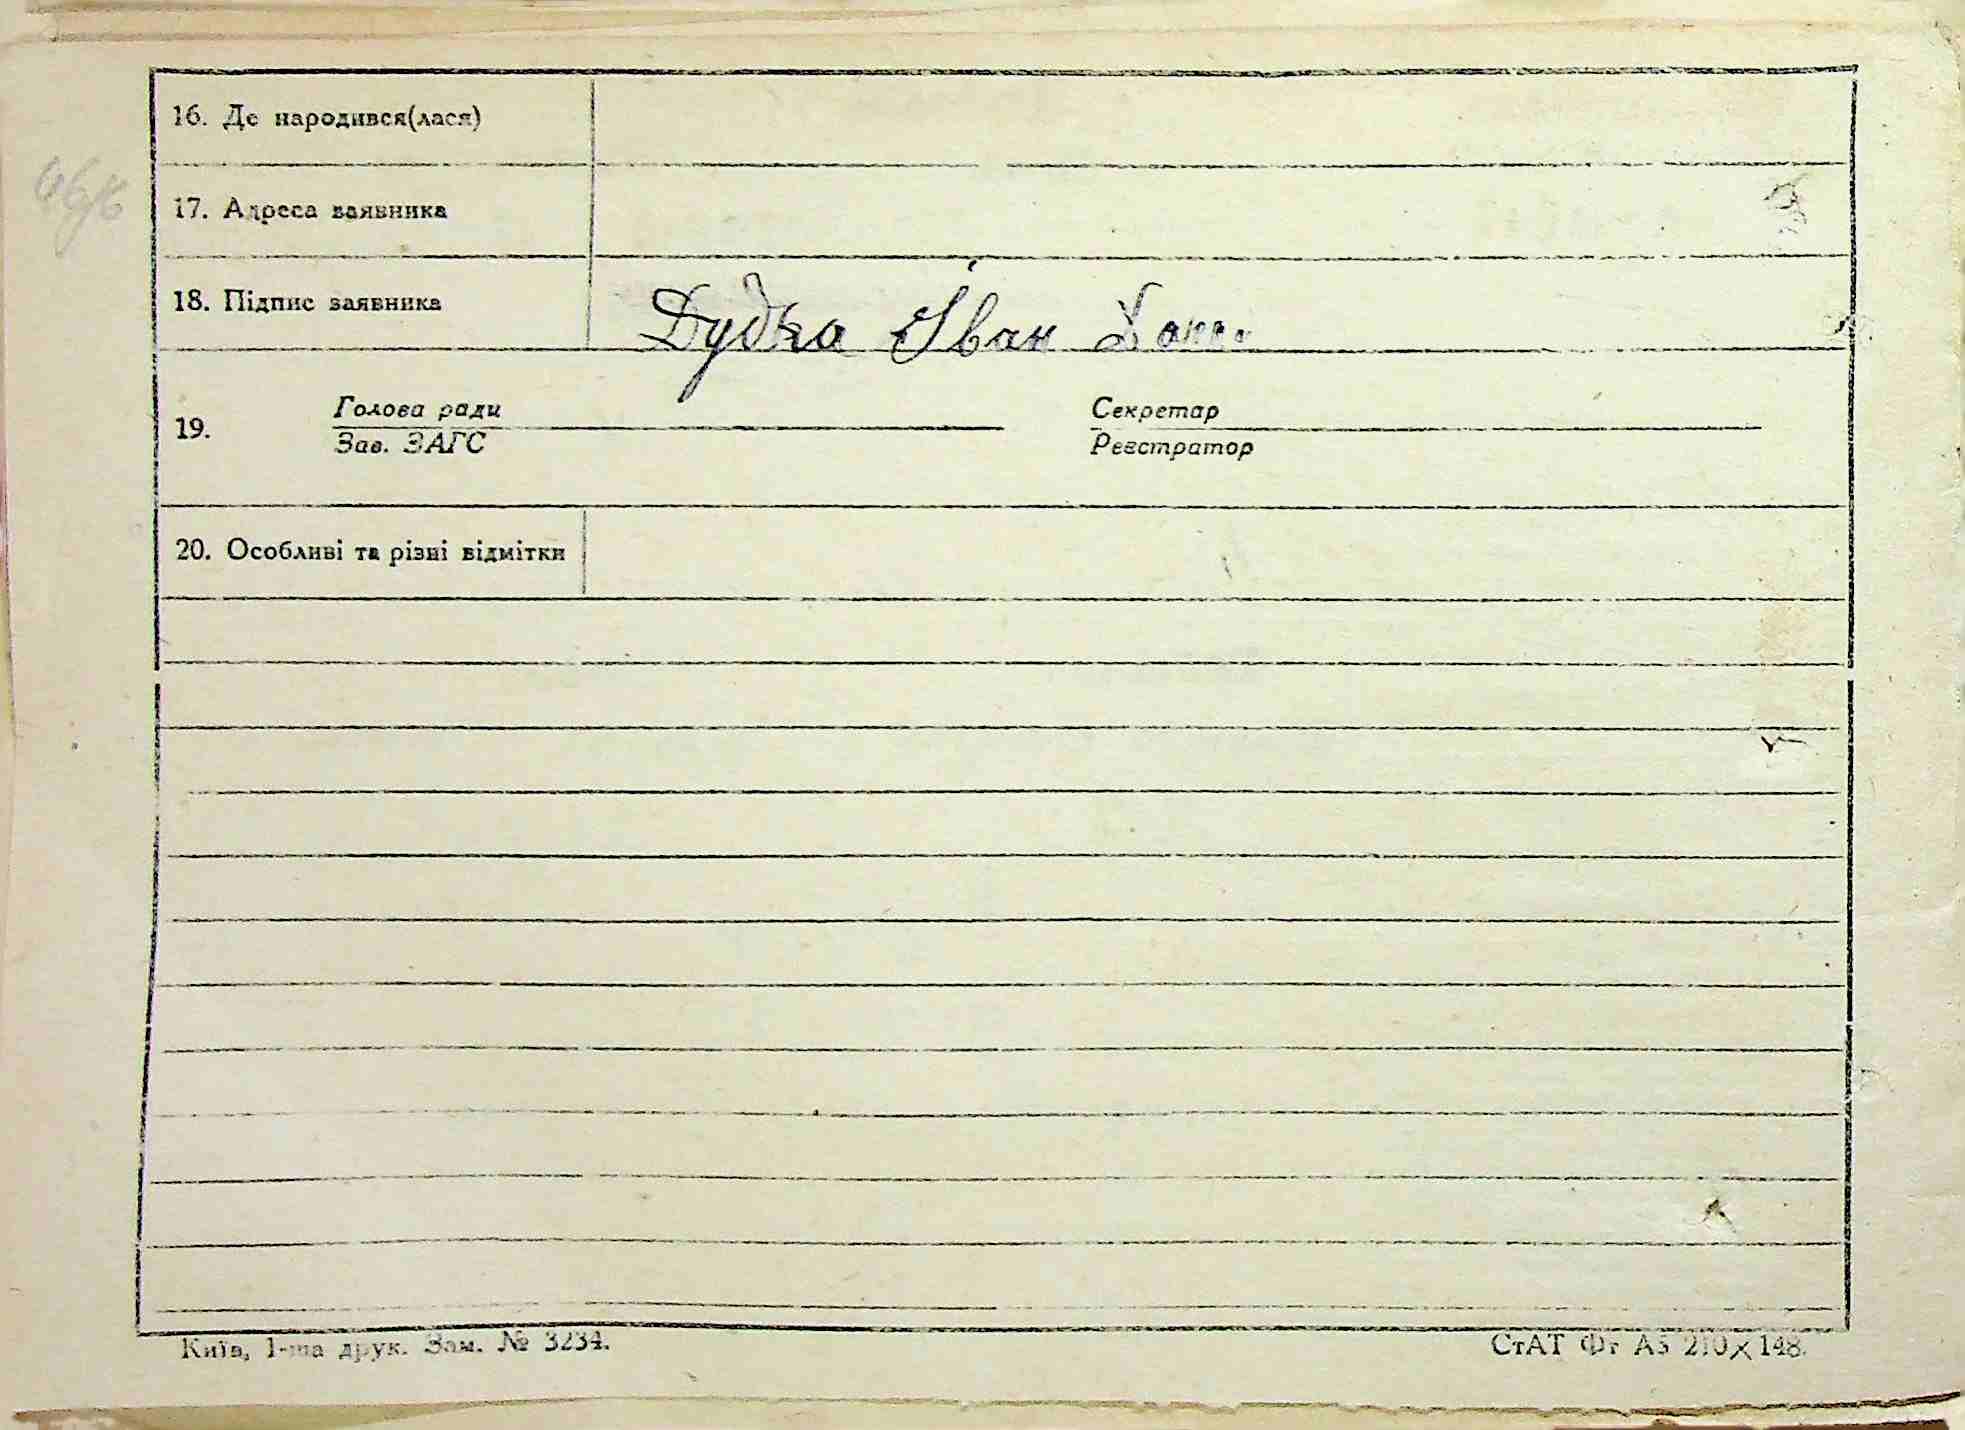 16. Де народився(лася)
17. Адреса заявника
18. Підпис заявника Дудка Іван
19. Голова ради Секретар
Зав. ЗАГС Реєстратор
20. Особливі та різні відмітки
Київ, 1-ша друк. Зам. № 3234. СтАТ Фт А5 210×148.